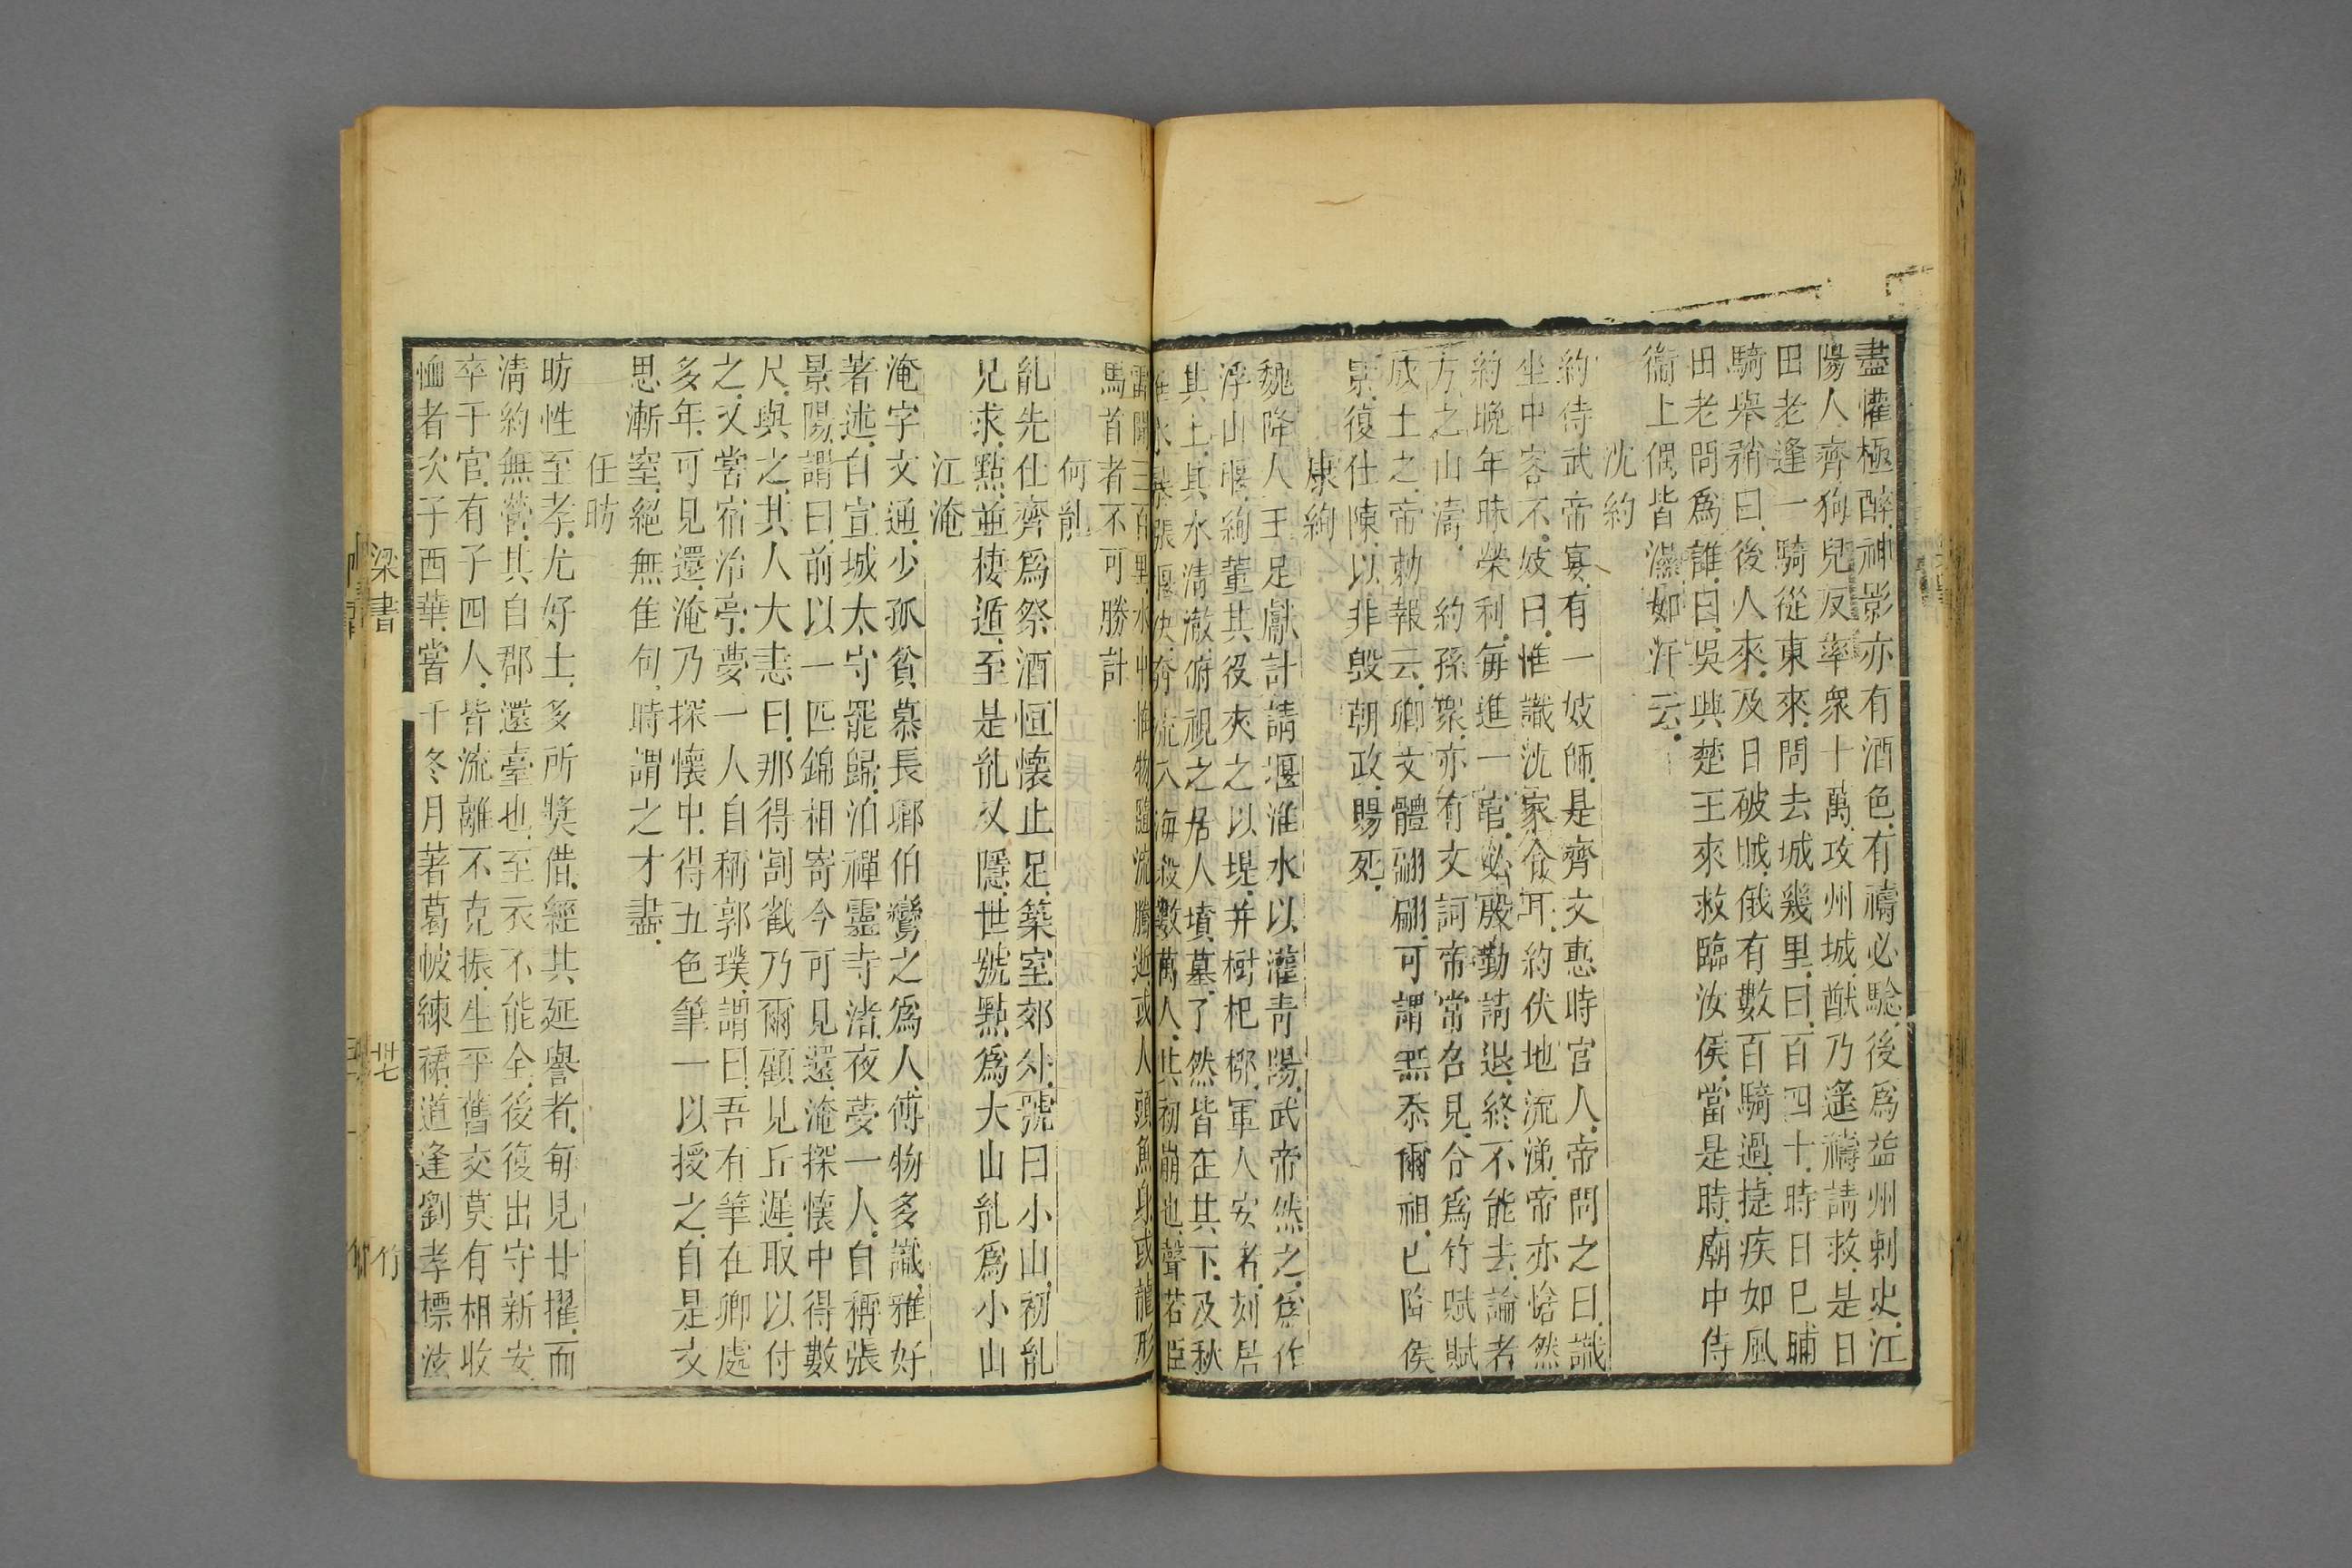 盡懽極醉神影亦有酒色有禱必驗後爲益州刺史江
陽人齊狗兒反率衆十萬攻州城猷乃遙禱請救是日
田老逢一騎從東來問去城幾里曰百四十時日巳晡
騎舉矟曰後人來及日破賊俄有數百騎過㨗疾如風
田老問爲誰曰吳興楚王來救臨汝侯當是時廟中侍
衞上偶皆濕如汗云
沈約
約侍武帝宴有一妓師是齊文惠時宮人帝問之曰識
坐中客不妓曰惟識沈家令耳約伏地流涕帝亦愴然
約晚年昧榮利每進一官必殷勤請退終不能去論者
方之山濤 約孫衆亦有文詞帝常召見令爲竹賦賦
成上之帝勅報云卿文體翩翩可謂無忝爾祖已降侯
景復仕陳以非毀朝政賜死
康絢
魏降人王足獻計請堰淮水以灌青陽武帝然之爲作
浮山堰絢董其役夾之以堤并樹杞栁軍人安者刻居
其上其水清澈俯視之居人墳墓了然皆在其下及秋
淮水暴張堰決奔流入海殺數萬人其初崩也聲若
雷聞三百里水中怪物隨流騰逝或人頭魚身或龍形
馬首者不可勝計
何胤
胤先仕齊爲祭酒恒懷止足築室郊外號曰小山初胤
兄求點並棲遁至是胤又隱世號點爲大山胤爲小山
江淹
淹字文通少孤貧慕長鄉伯鸞之爲人傅物多識雅好
著述自宣城太守罷歸泊禪靈寺渚夜夢一人自稱張
景陽謂曰前以一匹錦相寄今可見還淹探懷中得數
尺與之其人大恚曰那得割截乃爾顧見丘遲取以付
之又嘗宿冶亭夢一人自稱郭璞謂曰吾有筆在卿處
多年可見還淹乃探懷中得五色筆一以授之自是文
思漸窒絕無佳句時謂之才盡
任昉
昉性至孝尤好士多所奬借經其延譽者每見廿擢而
清約無營其自郡還臺也至衣不能全後復出守新安
卒于官有子四人皆流離不克振生平舊交莫有相收
恤者次子西華嘗于冬月著葛帔練裙道逢劉孝標泫
梁書 廿七 竹